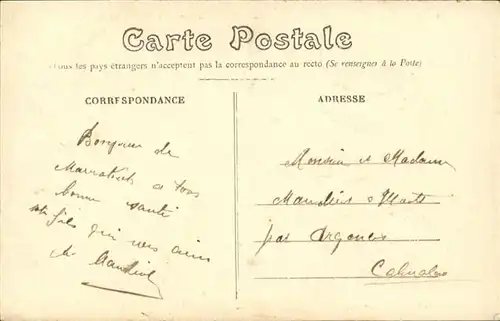 Carte Postale
Tous les pays étrangers n'acceptent pas la correspondance au recto (Se renseigner à la Poste)
CORRESPONDANCE
Bonjour de
Marrakech a tous
bonne santé
fils qui vous aime
ADRESSE
Monsieur et Madame
par Argences
Calvados